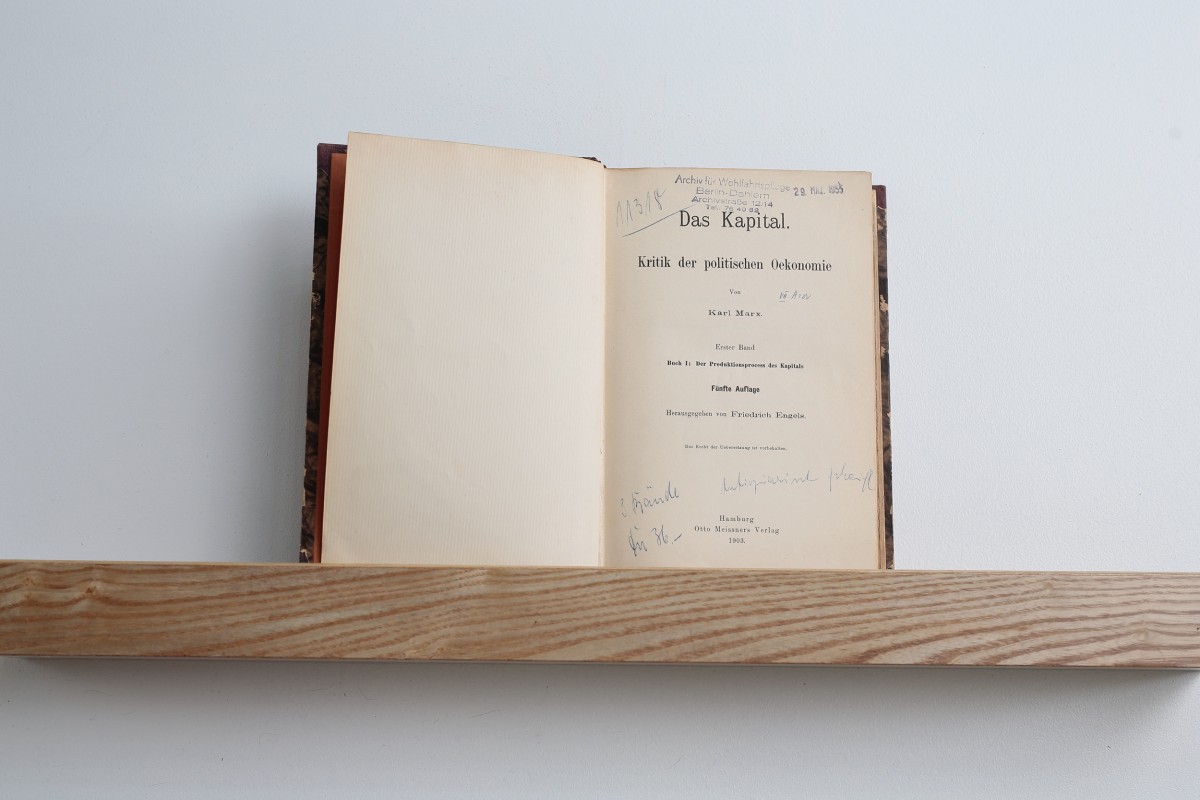 Archiv für Wohlfahrtspflege
Berlin-Dahlem
Archivstraße 12-14
29. Mrz. 1955
11318
Das Kapital.
Kritik der politischen Oekonomie
Von
Karl Marx.
Erster Band
Buch I: Der Produktionsprocess des Kapitals
Fünfte Auflage
Herausgegeben von Friedrich Engels.
Das Recht der Uebersetzung ist vorbehalten.
Antiquarisch
Bände
36.-
Hamburg
Otto Meissners Verlag
1903.